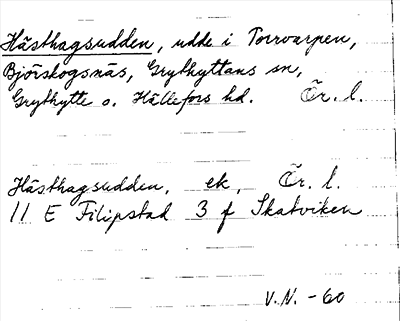 Hästhagsudden, udde i Torrvarpen,
Björskogsnäs, Grythyttans sn,
Grythytte o. Hällefors hd. Ör. l.
Hästhagsudden, ek, Ör. l.
11 E Filipstad 3 f Skatviken
V.N. -60